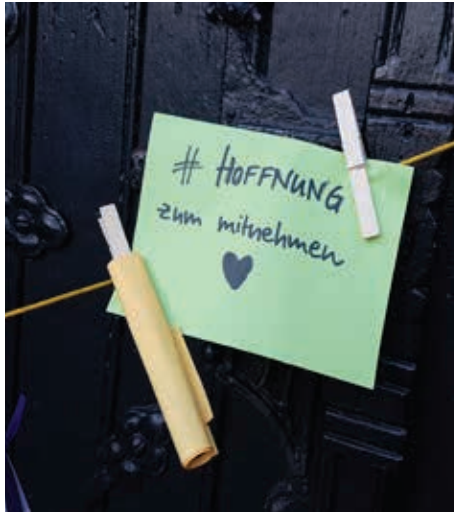 # HOFFNUNG
zum mitnehmen